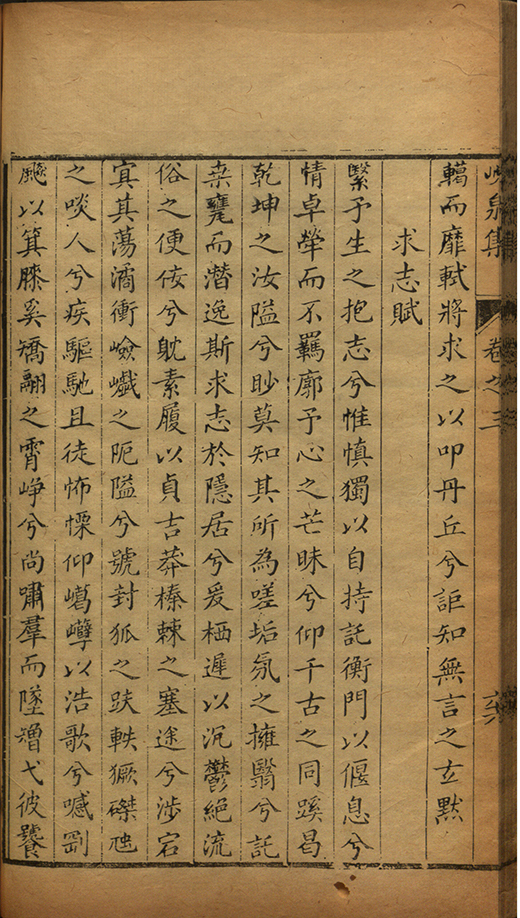 峴泉集 卷之三
轕而靡軾將求之以叩丹丘兮詎知無言之玄黙
求志賦
繄予生之抱志兮惟慎獨以自持託衡門以偃息兮
情卓犖而不羈廓予心之芒昧兮仰千古之同蹊曷
乾坤之汝隘兮眇莫知其所為嗟垢氛之擁翳兮託
桒甕而潛逸斯求志於隱居兮爰栖遲以沉鬱絕流
俗之便佞兮躭素履以貞吉莽榛棘之塞途兮涉宕
寘其蕩潏衝嶮巇之阨隘兮號封狐之趺軼獗磔虺
之啖人兮疾驅馳且徒怖慄仰嶱㠥以浩歌兮嘁劉
飈以箕膝奚矯翮之霄崢兮尚嘯羣而墜矰弋彼饕